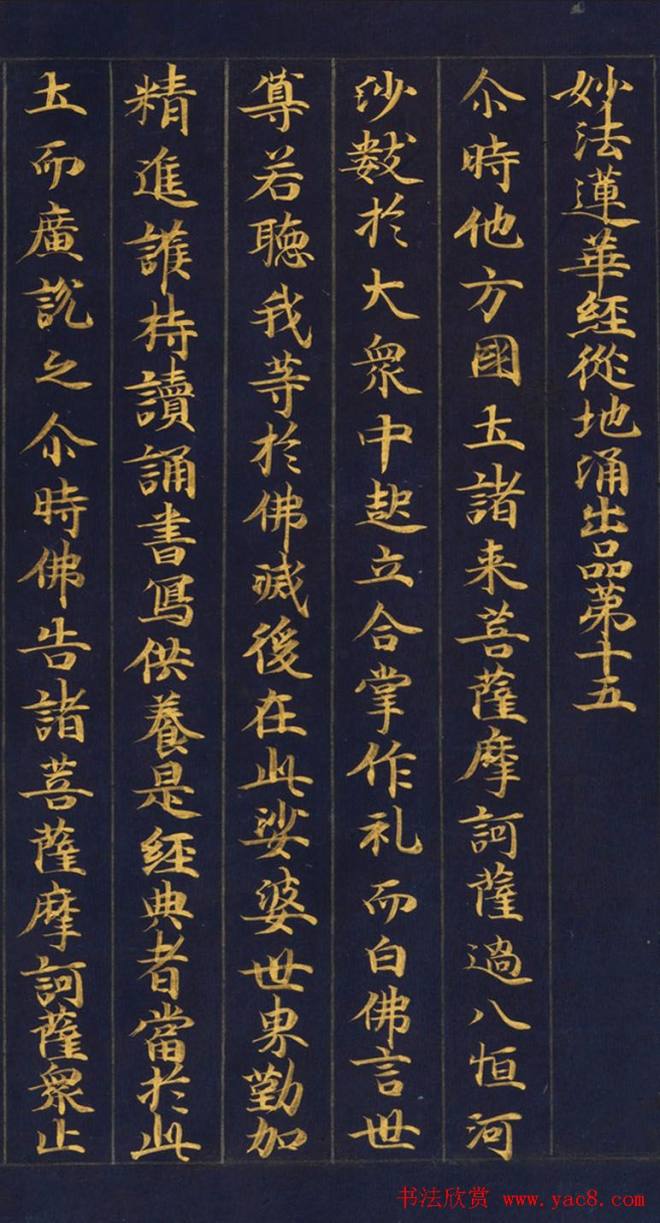 妙法蓮華經從地涌出品第十五
尒時他方國土諸来菩薩摩訶薩過八恒河
沙數於大衆中起立合掌作礼而白佛言世
尊若聽我等於佛滅後在此娑婆世界勤加
精進護持讀誦書寫供養是經典者當於此
土而廣說之尒時佛告諸菩薩摩訶薩衆止
书法欣赏 www.yac8.com